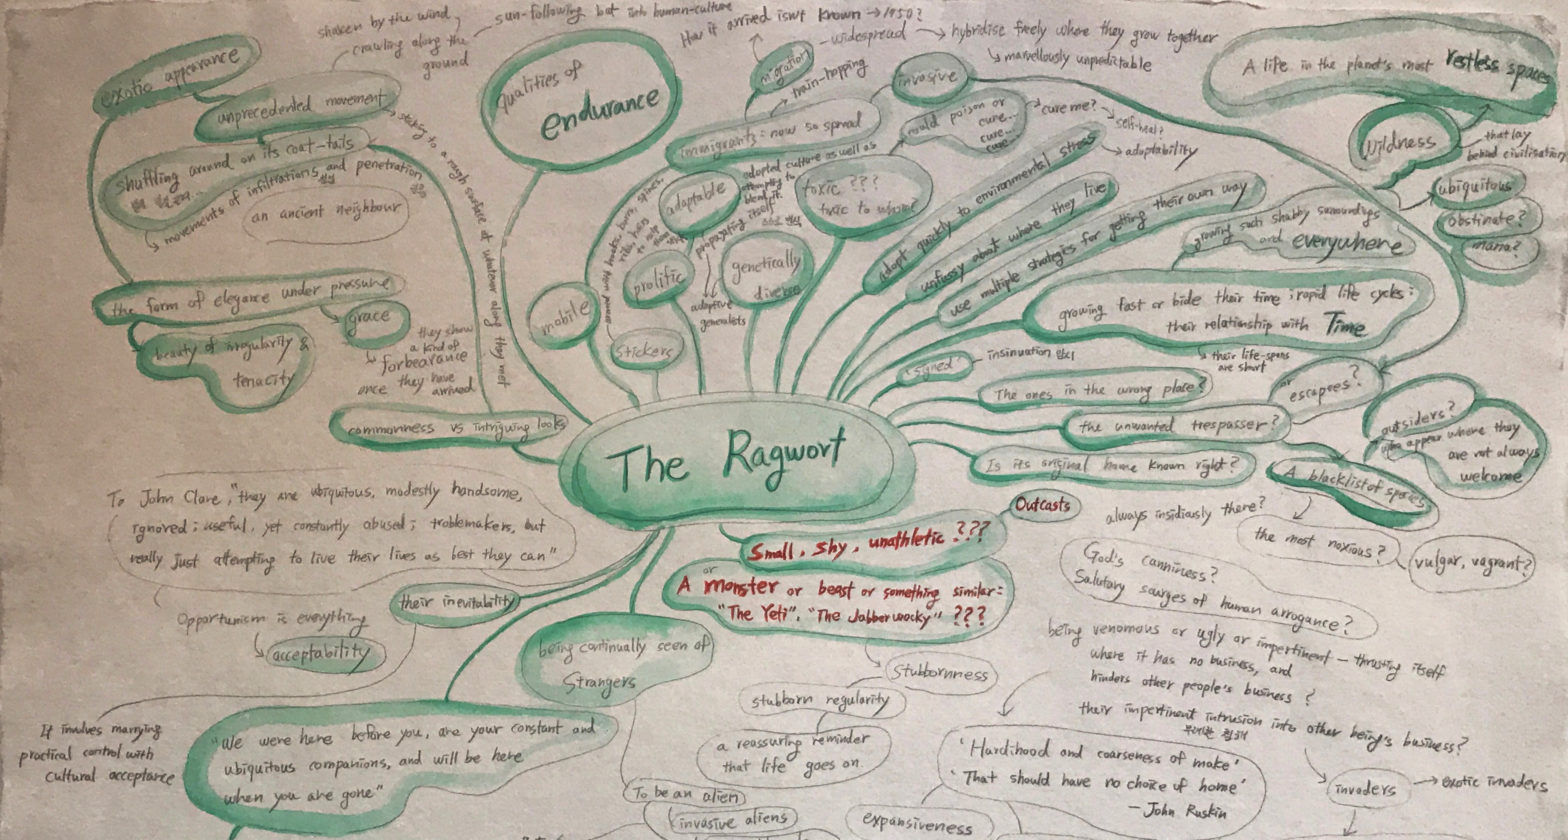 shaken by the wind,
crawling along the
ground
sun-following but into human-culture
How it arrived isn't known → 1950?
exotic appearance
unprecedented movement
shuffling around on its coat-tails
movements of infiltrations and penetration
an ancient neighbour
sticking to a rough surface at whatever along they meet
the form of elegance under pressure
grace
they show
a kind of
forbearance
once they have
arrived
beauty of irregularity &
tenacity
commonness vs intriguing looks
Qualities of
endurance
migration
widespread → hybridise freely where they grow together
marvellously unpredictable
train-hopping
invasive
immigrants: now so spread
could poison or
cure...
cure...
cure me?
self-heal?
adaptability
adaptable
adopted culture as well as
attempting to
blend it.
propagating itself
adaptive
generalists
toxic ???
toxic to whom?
hooks, burrs, spines,
mobile
prolific
stickers
genetically
diverse
adapt quickly to environmental stress
unfussy about where they live
use multiple strategies for getting their own way
growing such shabby surroundings
and everywhere
growing fast or bide their time: rapid life cycles:
their relationship with Time
their life-spans
are short
A life in the planet's most restless spaces
wildness
that lay
behind civilisation
ubiquitous
obstinate?
mania?
'signed'
insinuation 암시
The ones in the wrong place?
or
escapees?
the unwanted trespasser?
Is its original home known right?
outsiders?
who appear where they
are not always
welcome
A blacklist of species
always insidiously there?
the most noxious?
vulgar, vagrant?
The Ragwort
To John Clare, "they are ubiquitous, modestly handsome,
ignored; useful, yet constantly abused; troblemakers, but
really just attempting to live their lives as best they can"
Outcasts
Small, shy, unathletic ???
or
A monster or beast or something similar:
"The Yeti". "The Jabberwocky" ???
God's canniness?
Salutary scurges of human arrogance?
being venomous or ugly or impertinent – thrusting itself
where it has no business, and
hinders other people's business?
their impertinent intrusion into other being's business?
무례한 침해
their inevitability
Opportunism is everything
acceptability
being continually seen of
Strangers
Stubbornness
stubborn regularity
a reassuring reminder
that life goes on
It involves marrying
practical control with
cultural acceptance
"We were here before you, are your constant and
ubiquitous companions, and will be here
when you are gone"
'Hardihood and coarseness of make'
'That should have no choice of home'
– John Ruskin
invaders → exotic invaders
To be an alien
invasive aliens
expansiveness